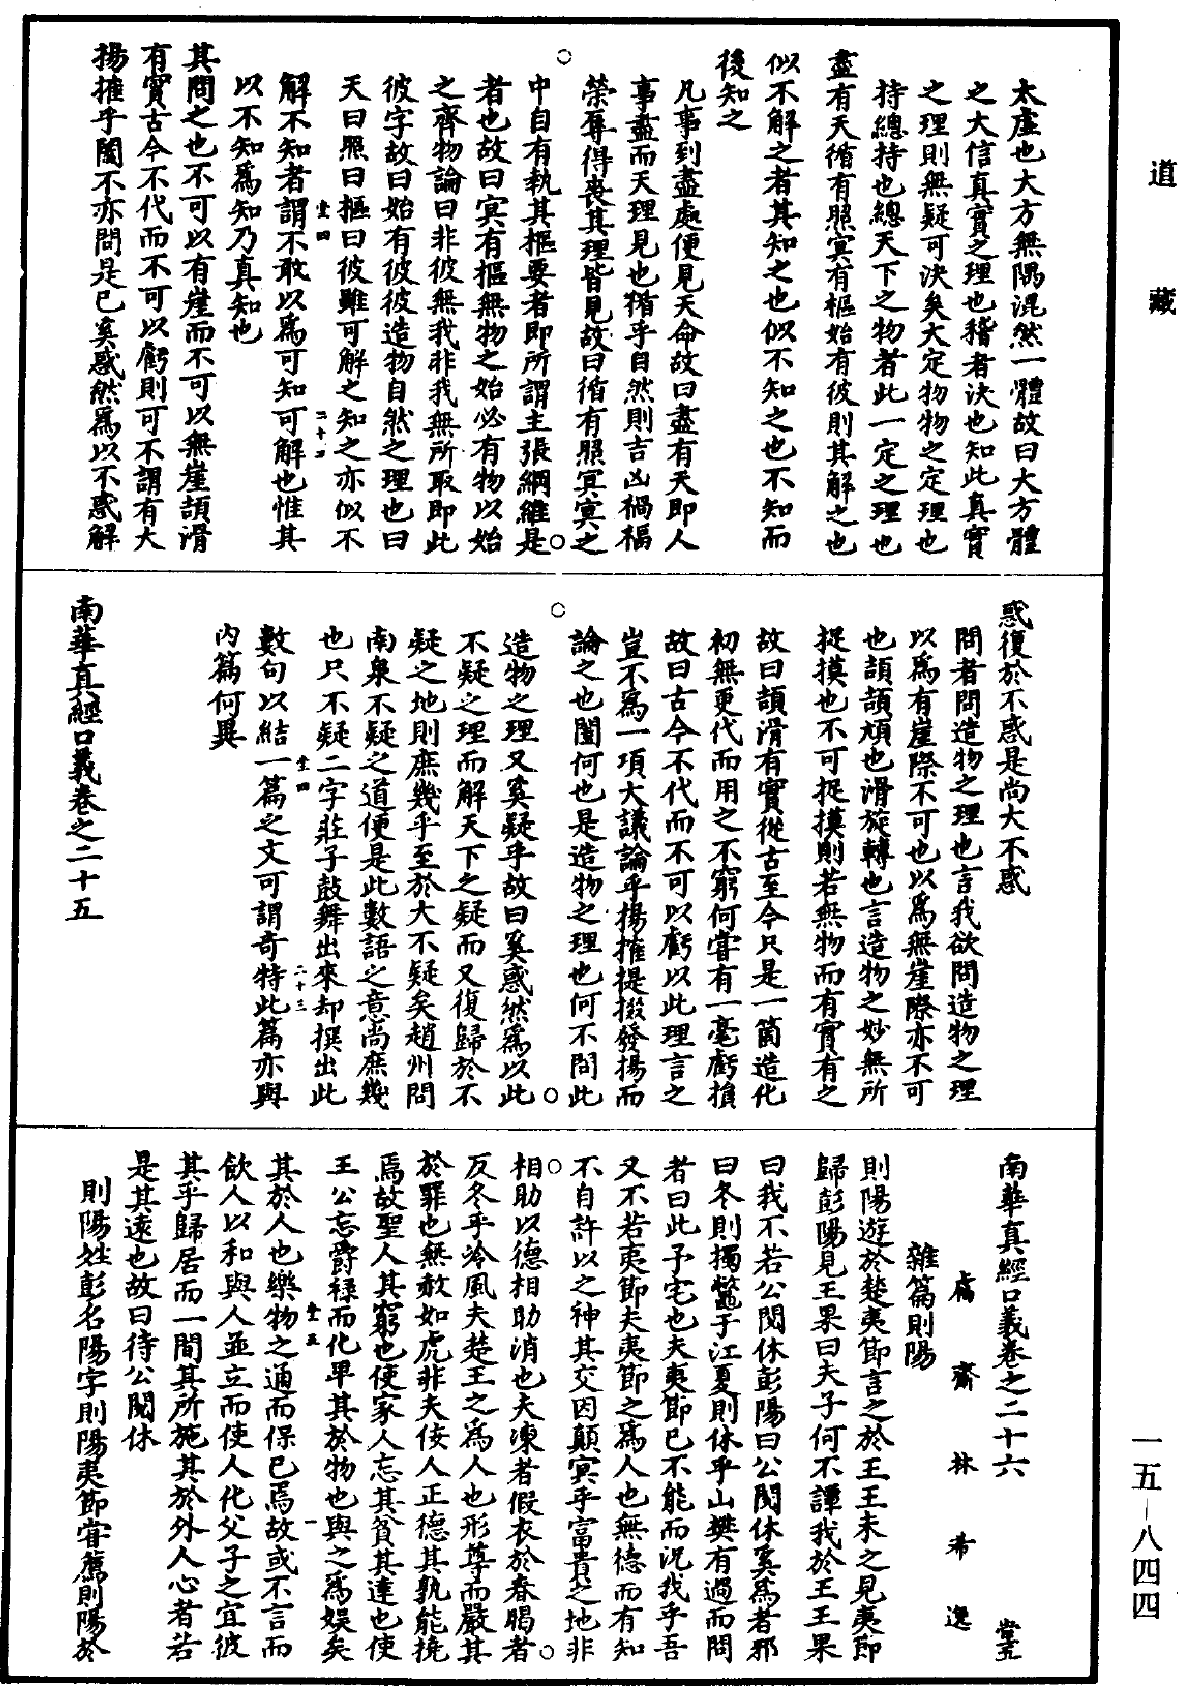 道藏
太虛也大方無隅混然一體故曰大方體
之大信真實之理也稽者決也知此真實
之理則無疑可決矣大定物物之定理也
持總持也總天下之物者此一定之理也
盡有天循有照冥有樞始有彼則其解之也
似不解之者其知之也似不知之也不知而
後知之
凡事到盡處便見天命故曰盡有天即人
事盡而天理見也循乎自然則吉凶禍福
榮辱得喪其理皆見故曰循有照冥冥之
中自有執其樞要者即所謂主張綱維是
者也故曰冥有樞無物之始必有物以始
之齊物論曰非彼無我非我無所取即此
彼字故曰始有彼彼造物自然之理也曰
天曰照曰樞曰彼雖可解之知之亦似不
解不知者謂不敢以為可知可解也惟其
以不知為知乃真知也
其問之也不可以有崖而不可以無崖頡滑
有實古今不代而不可以虧則可不謂有大
揚搉乎闔不亦問是已奚惑然為以不惑解
惑復於不惑是尚大不惑
問者問造物之理也言我欲問造物之理
以為有崖際不可也以為無崖際亦不可
也頡頡頏也滑旋轉也言造物之妙無所
捉摸也不可捉摸則若無物而有實有之
故曰頡滑有實從古至今只是一箇造化
初無更代而用之不窮何嘗有一毫虧損
故曰古今不代而不可以虧以此理言之
豈不為一項大議論乎揚搉提掇發揚而
論之也闔何也是造物之理也何不問此
造物之理又奚疑乎故曰奚惑然為以此
不疑之理而解天下之疑而又復歸於不
疑之地則庶幾乎至於大不疑矣趙州問
南泉不疑之道便是此數語之意尚庶幾
也只不疑二字莊子鼓舞出來却撰出此
數句以結一篇之文可謂奇特此篇亦與
內篇何異
南華真經口義卷之二十五
南華真經口義卷之二十六 堂五
鬳齋林希逸
雜篇則陽
則陽遊於楚夷節言之於王王未之見夷節
歸彭陽見王果曰夫子何不譚我於王王果
曰我不若公閱休彭陽曰公閱休奚為者邪
曰冬則擉鼈于江夏則休乎山樊有過而問
者曰此予宅也夫夷節已不能而況我乎吾
又不若夷節夫夷節之為人也無德而有知
不自許以之神其交因顛冥乎富貴之地非
相助以德相助消也夫凍者假衣於春暍者
反冬乎冷風夫楚王之為人也形尊而嚴其
於罪也無赦如虎非夫佞人正德其孰能撓
焉故聖人其窮也使家人忘其貧其達也使
王公忘爵祿而化卑其於物也與之為娛矣
其於人也樂物之通而保己焉故或不言而
飲人以和與人並立而使人化父子之宜彼
其乎歸居而一間其所施其於外人心者若
是其遠也故曰待公閱休
則陽姓彭名陽字則陽夷節嘗薦則陽於
堂四
二十三
堂五
一
一五—八四四